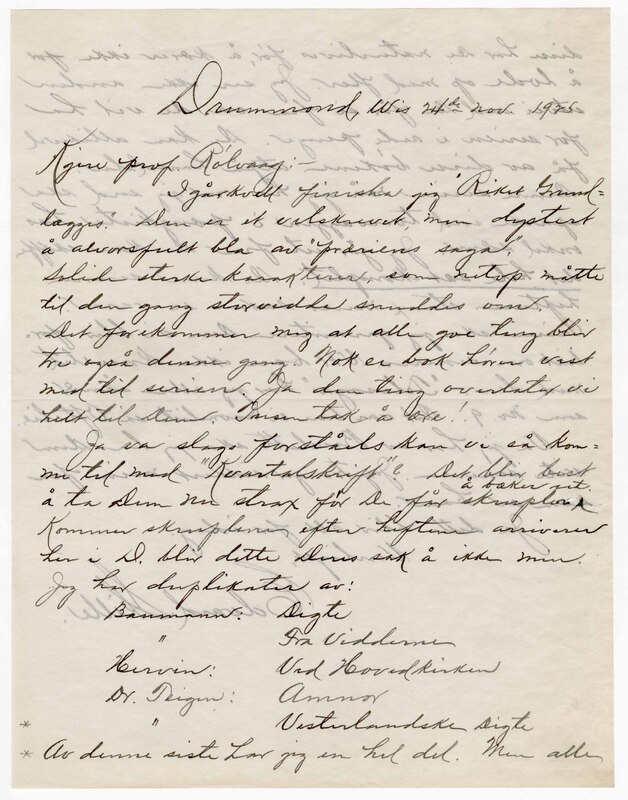 Drummond, Wis 24de nov. 1925
Kjere prof. Rölvaag:-
Igårkveld finisha jeg "Riket Grund-
lægges". Den er et velskrevet, men dystert
å alvorsfult bla av "præriens saga",
Solide sterke karakterer, som netop måtte
til den gang storvidda smuddes om.
Det forekommer mig at alle goe ting blir
tre også denne gang. Nok ei bok hører vist
med til serien. Ja den ting overlater vi
helt til Dem. Tusen tak å ære!
Ja va slags forståels kan vi så kom-
me til med "Kvartalskrift"? Det blir best
å ta Dem nu strax før De får skrupler å bøker sit.
Kommer skruplene efter heftene arriverer
her i D. blir dette Deres sak å ikke min.
Jeg har duplikater av:
Baumann: Digte
" Fra Vidderne
Hervin: Ved Hovedkirken
Dr. Teigen: Ammor
* " Vesterlandske Digte
* Av denne siste har jeg en hel del. Men alle